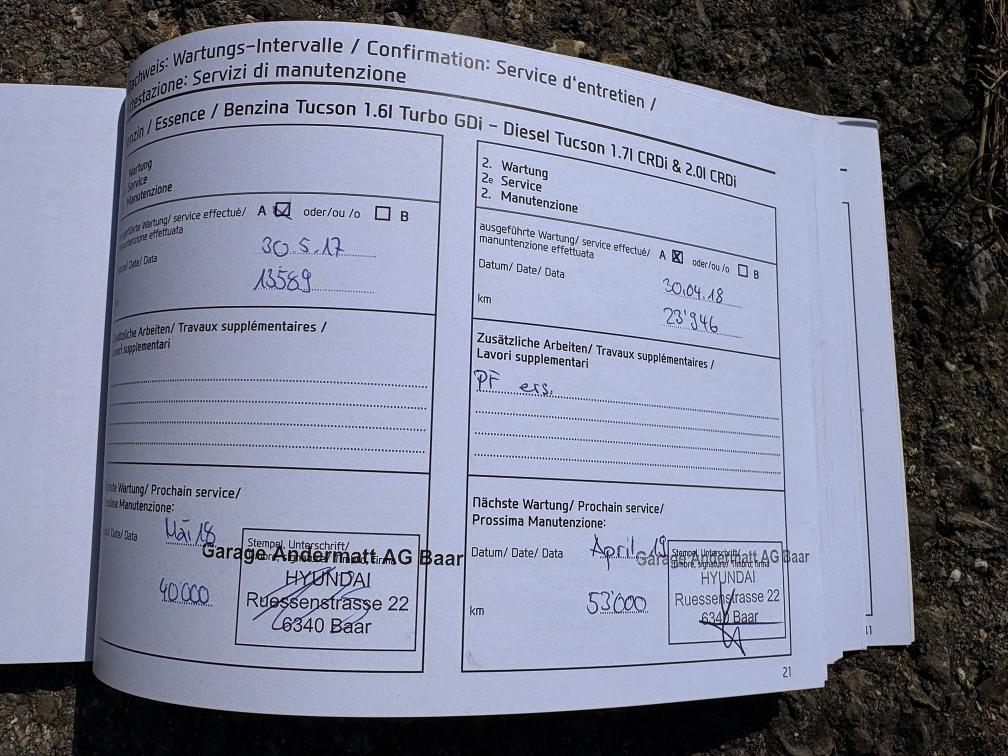 achweis: Wartungs-Intervalle / Confirmation: Service d'entretien /
testazione: Servizi di manutenzione
nzin / Essence / Benzina Tucson 1.6l Turbo GDi – Diesel Tucson 1.7l CRDi & 2.0l CRDi
Wartung
Service
Manutenzione
ausgeführte Wartung/ service effectué/ A oder/ou /o B
manuntenzione effettuata
Datum/ Date/ Data
30.5.17
13589
Zusätzliche Arbeiten/ Travaux supplémentaires /
Lavori supplementari
Nächste Wartung/ Prochain service/
Prossima Manutenzione:
Date/ Data
Mai 18
40'000
Stempel, Unterschrift/
Garage Andermatt AG Baar
HYUNDAI
Ruessenstrasse 22
6340 Baar
2. Wartung
2e Service
2. Manutenzione
ausgeführte Wartung/ service effectué/ A oder/ou /o B
manuntenzione effettuata
Datum/ Date/ Data
30.04.18
km
23'946
Zusätzliche Arbeiten/ Travaux supplémentaires /
Lavori supplementari
PF ers.
Nächste Wartung/ Prochain service/
Prossima Manutenzione:
Datum/ Date/ Data April 19
km 53'000
Stempel, Unterschrift/
Garage Andermatt AG Baar
HYUNDAI
Ruessenstrasse 22
6340 Baar
21